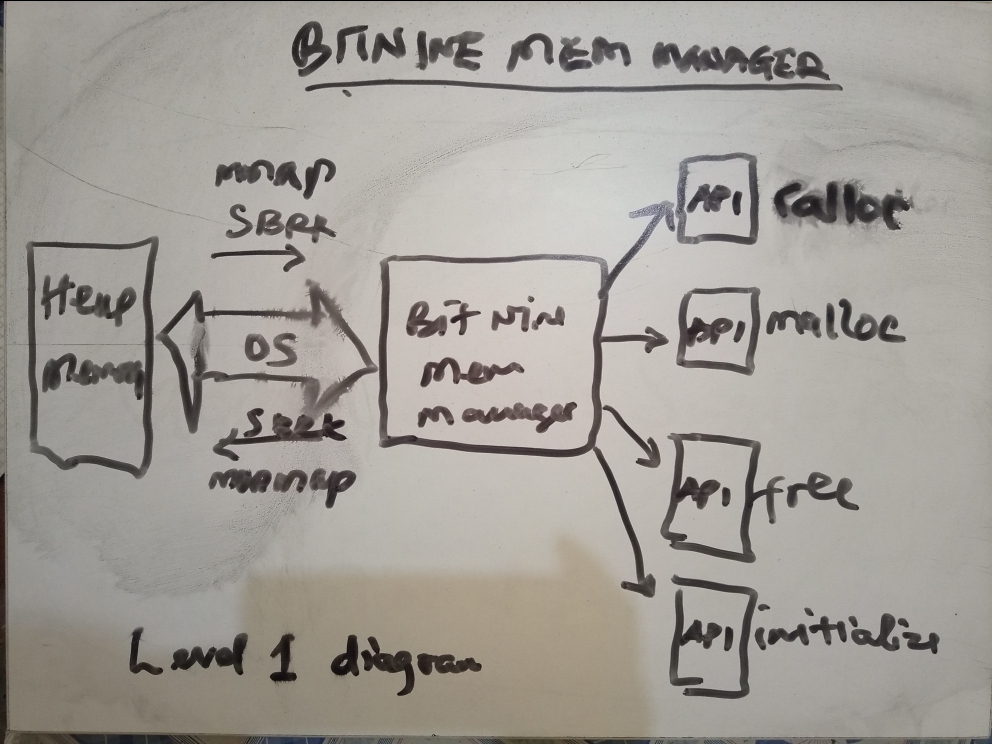 BITNINE MEM MANAGER
mmap
SBRK
Heap
Memory
OS
SBRK
munmap
Bit Nin
Mem
Manager
API calloc
API malloc
API free
API initialize
Level 1 diagram